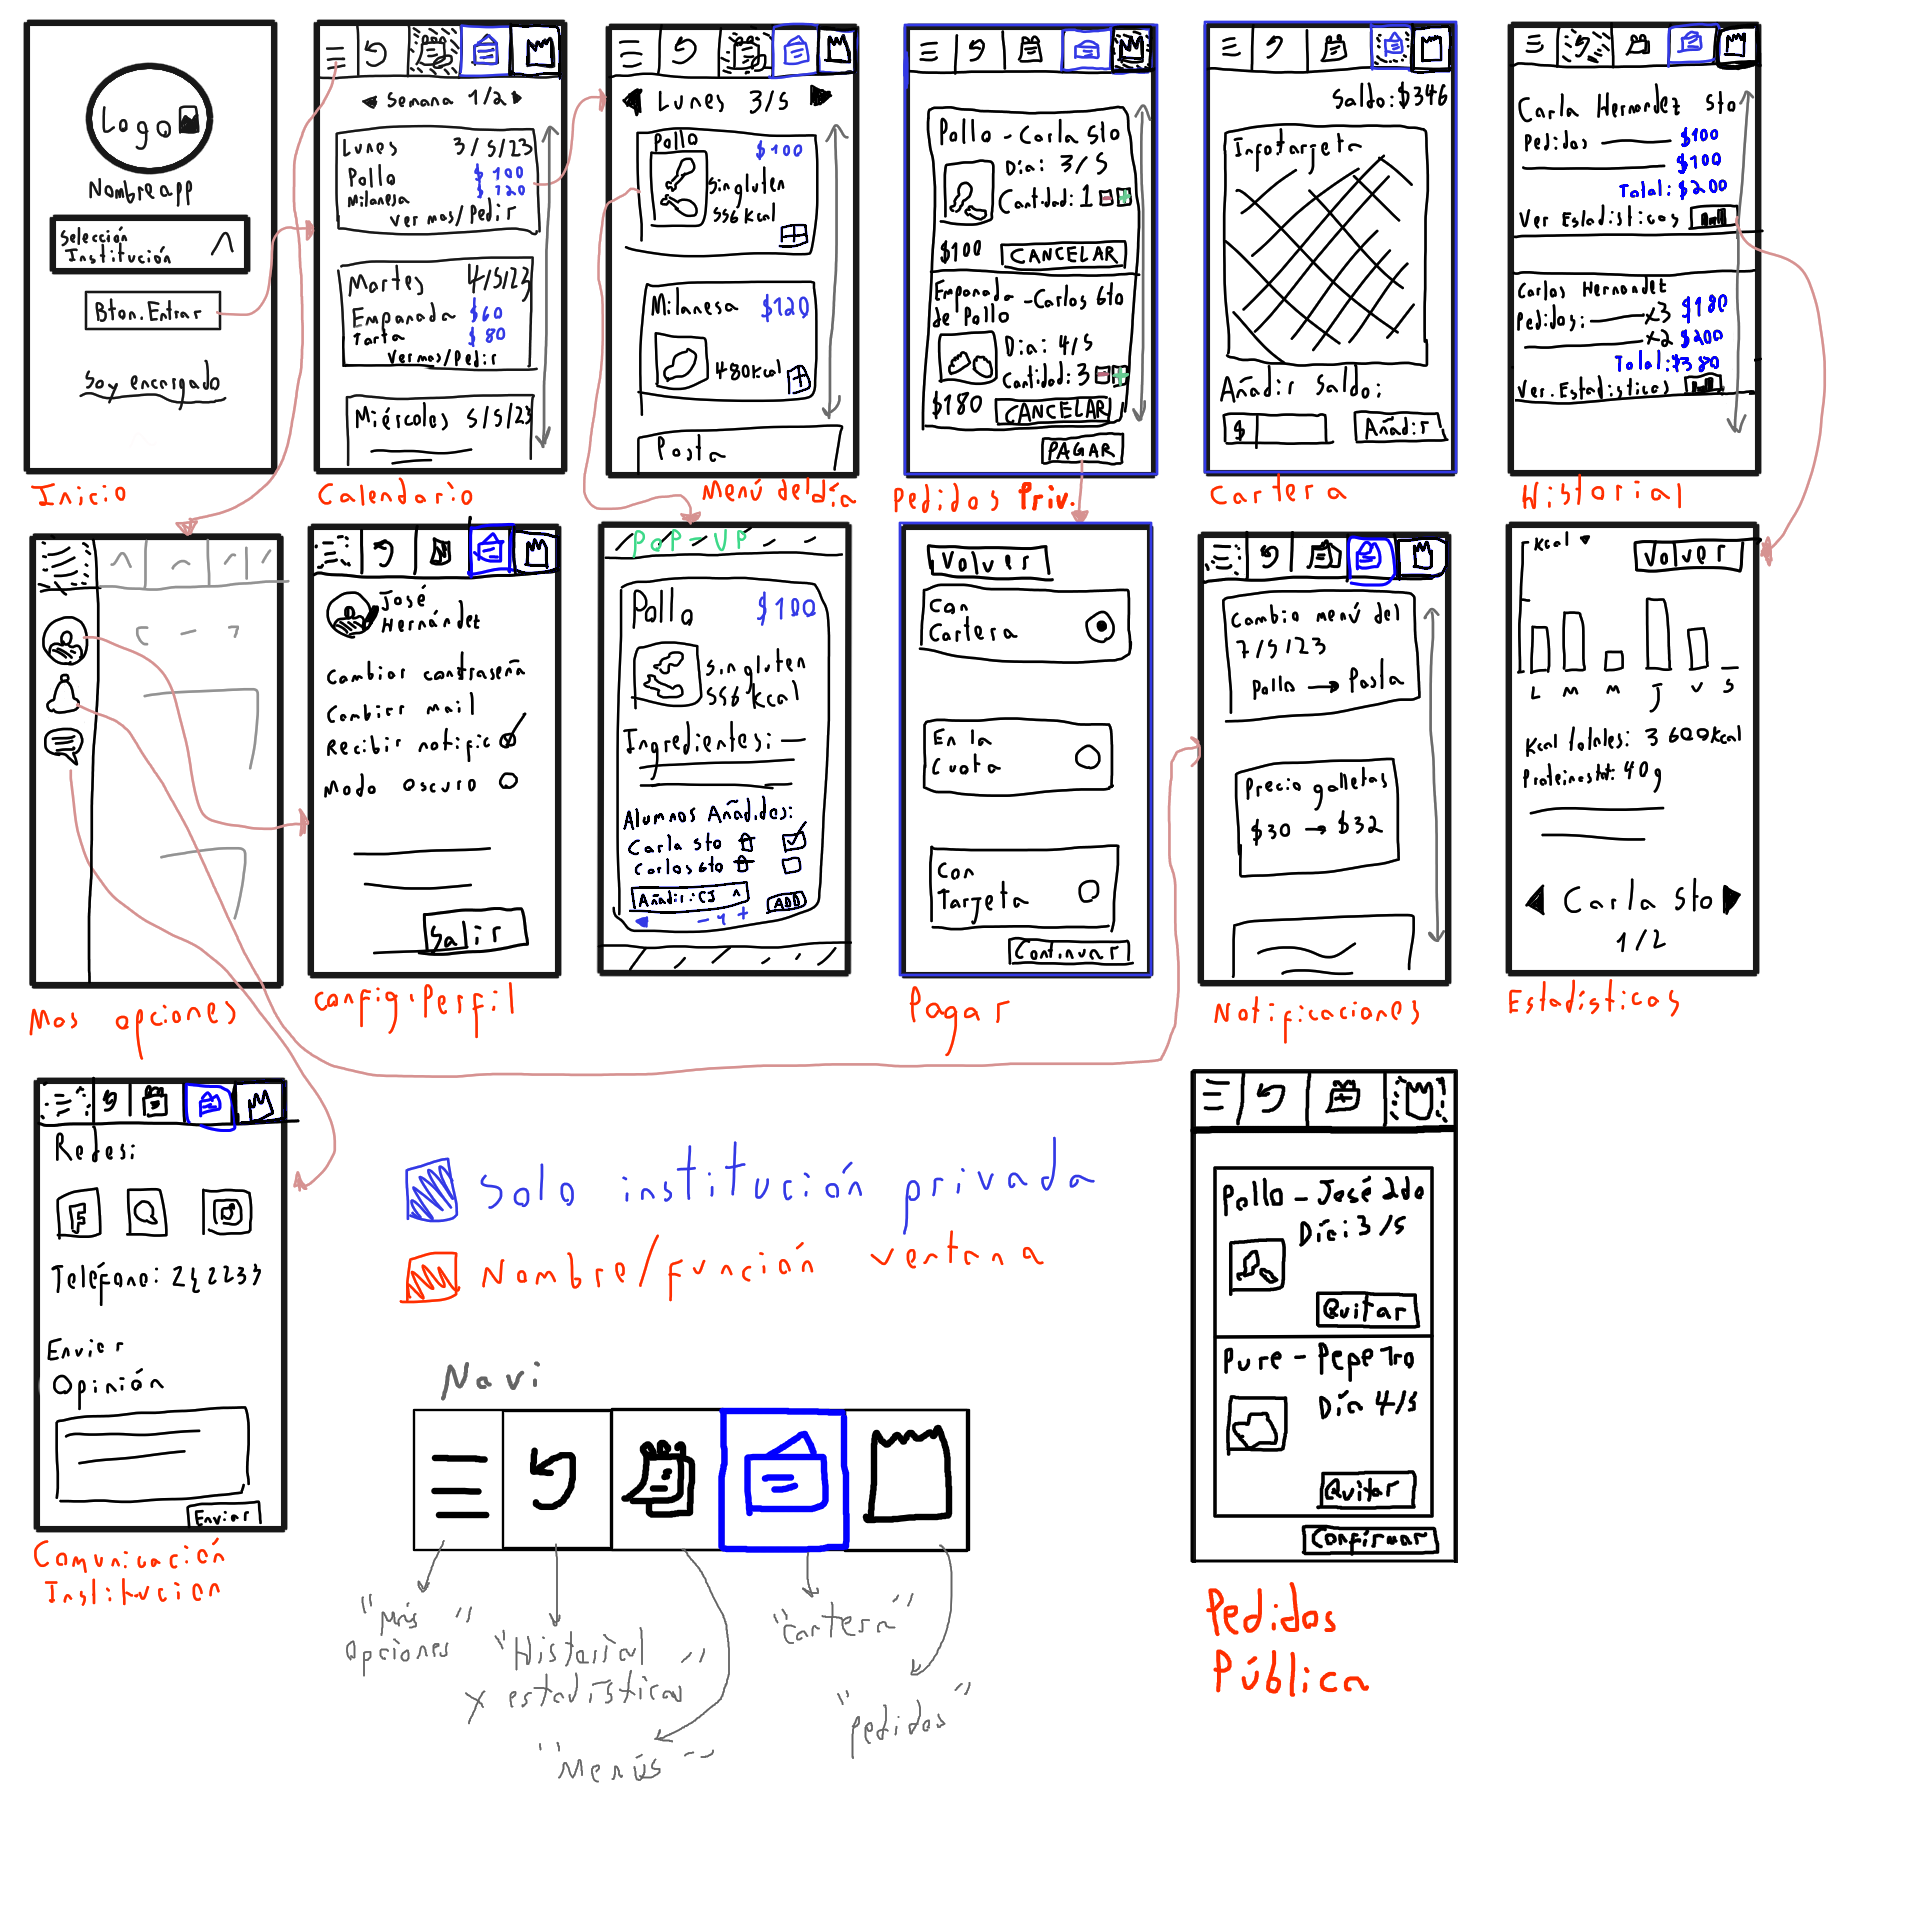 Logo
Nombreapp
Selección
Institución
Bton.Entrar
Soy encargado
Inicio
Semana 1/2
Lunes 3/5/23
Pollo $100
Milanesa $120
Ver mas/Pedir
Martes 4/5/23
Empanada $60
Tarta $80
Ver mas/Pedir
Miércoles 5/5/23
Calendario
Lunes 3/5
Pollo $100
Singluten
556 Kcal
Milanesa $120
480kcal
Pasta
Menú del día
Pollo - Carla 5to
Día: 3/5
Cantidad: 1 - +
$100 CANCELAR
Empanada - Carlos 6to
de Pollo
Día: 4/5
Cantidad: 3 - +
$180 CANCELAR
PAGAR
Pedidos Priv.
Saldo: $346
Infotargeta
Añadir Saldo:
$ Añadir
Cartera
Carla Hernandez 5to
Pedidos $100
$100
Total: $200
Ver Estadisticas
Carlos Hernandez
Pedidos: x3 $180
x2 $200
Total: $380
Ver. Estadisticas
Historial
Mas opciones
José
Hernández
Cambiar contraseña
Cambiar mail
Recibir notific
Modo oscuro
Salir
Config.Perfil
POP-UP
Pollo $100
Singluten
556 kcal
Ingredientes:
Alumnos Añadidos:
Carla 5to
Carlos 6to
Añadir: CJ ^
ADD
- 1 +
Volver
Con
Cartera
En la
Cuota
Con
Targeta
Continuar
Pagar
Cambio menú del
7/5/23
Pollo → Pasta
Precio galletas
$30 → $32
Notificaciones
Kcal
Volver
L M M J V S
Kcal totales: 3600kcal
Proteinas tot: 40g
Carla 5to
1/2
Estadísticas
Redes:
Teléfono: 242233
Enviar
Opinión
Enviar
Comunicación
Institucion
Solo institución privada
Nombre/función ventana
Navi
"Más
opciones"
"Historial
y estadísticas"
"Menús"
"Cartera"
"pedidos"
Pollo - José 2do
Día: 3/5
Quitar
Pure - Pepe 7ro
Día 4/5
Quitar
Confirmar
Pedidos
Pública